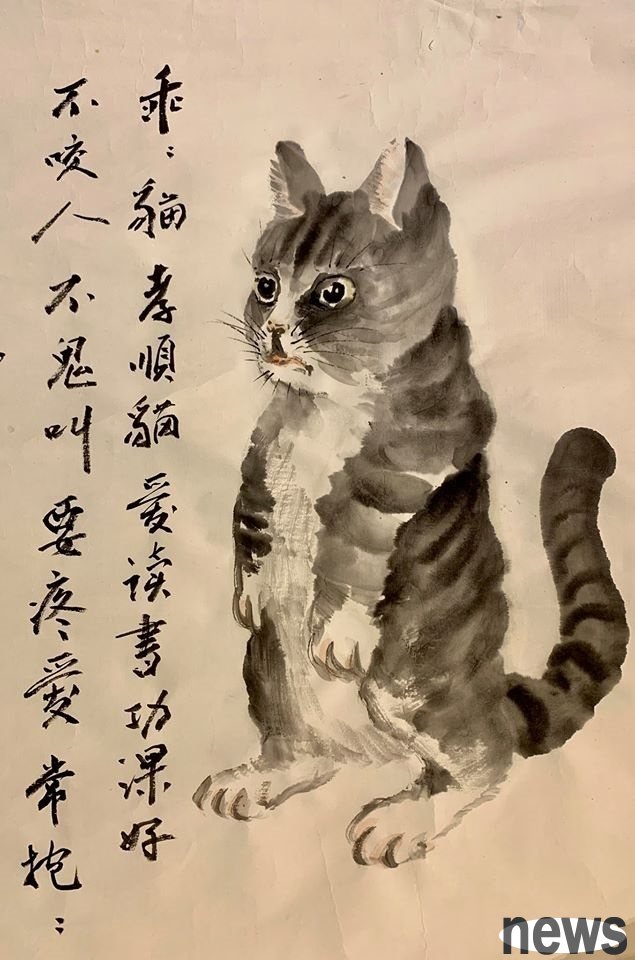 乖：貓孝順貓愛讀書功課好
不咬人不鬼叫要疼愛常抱：
news